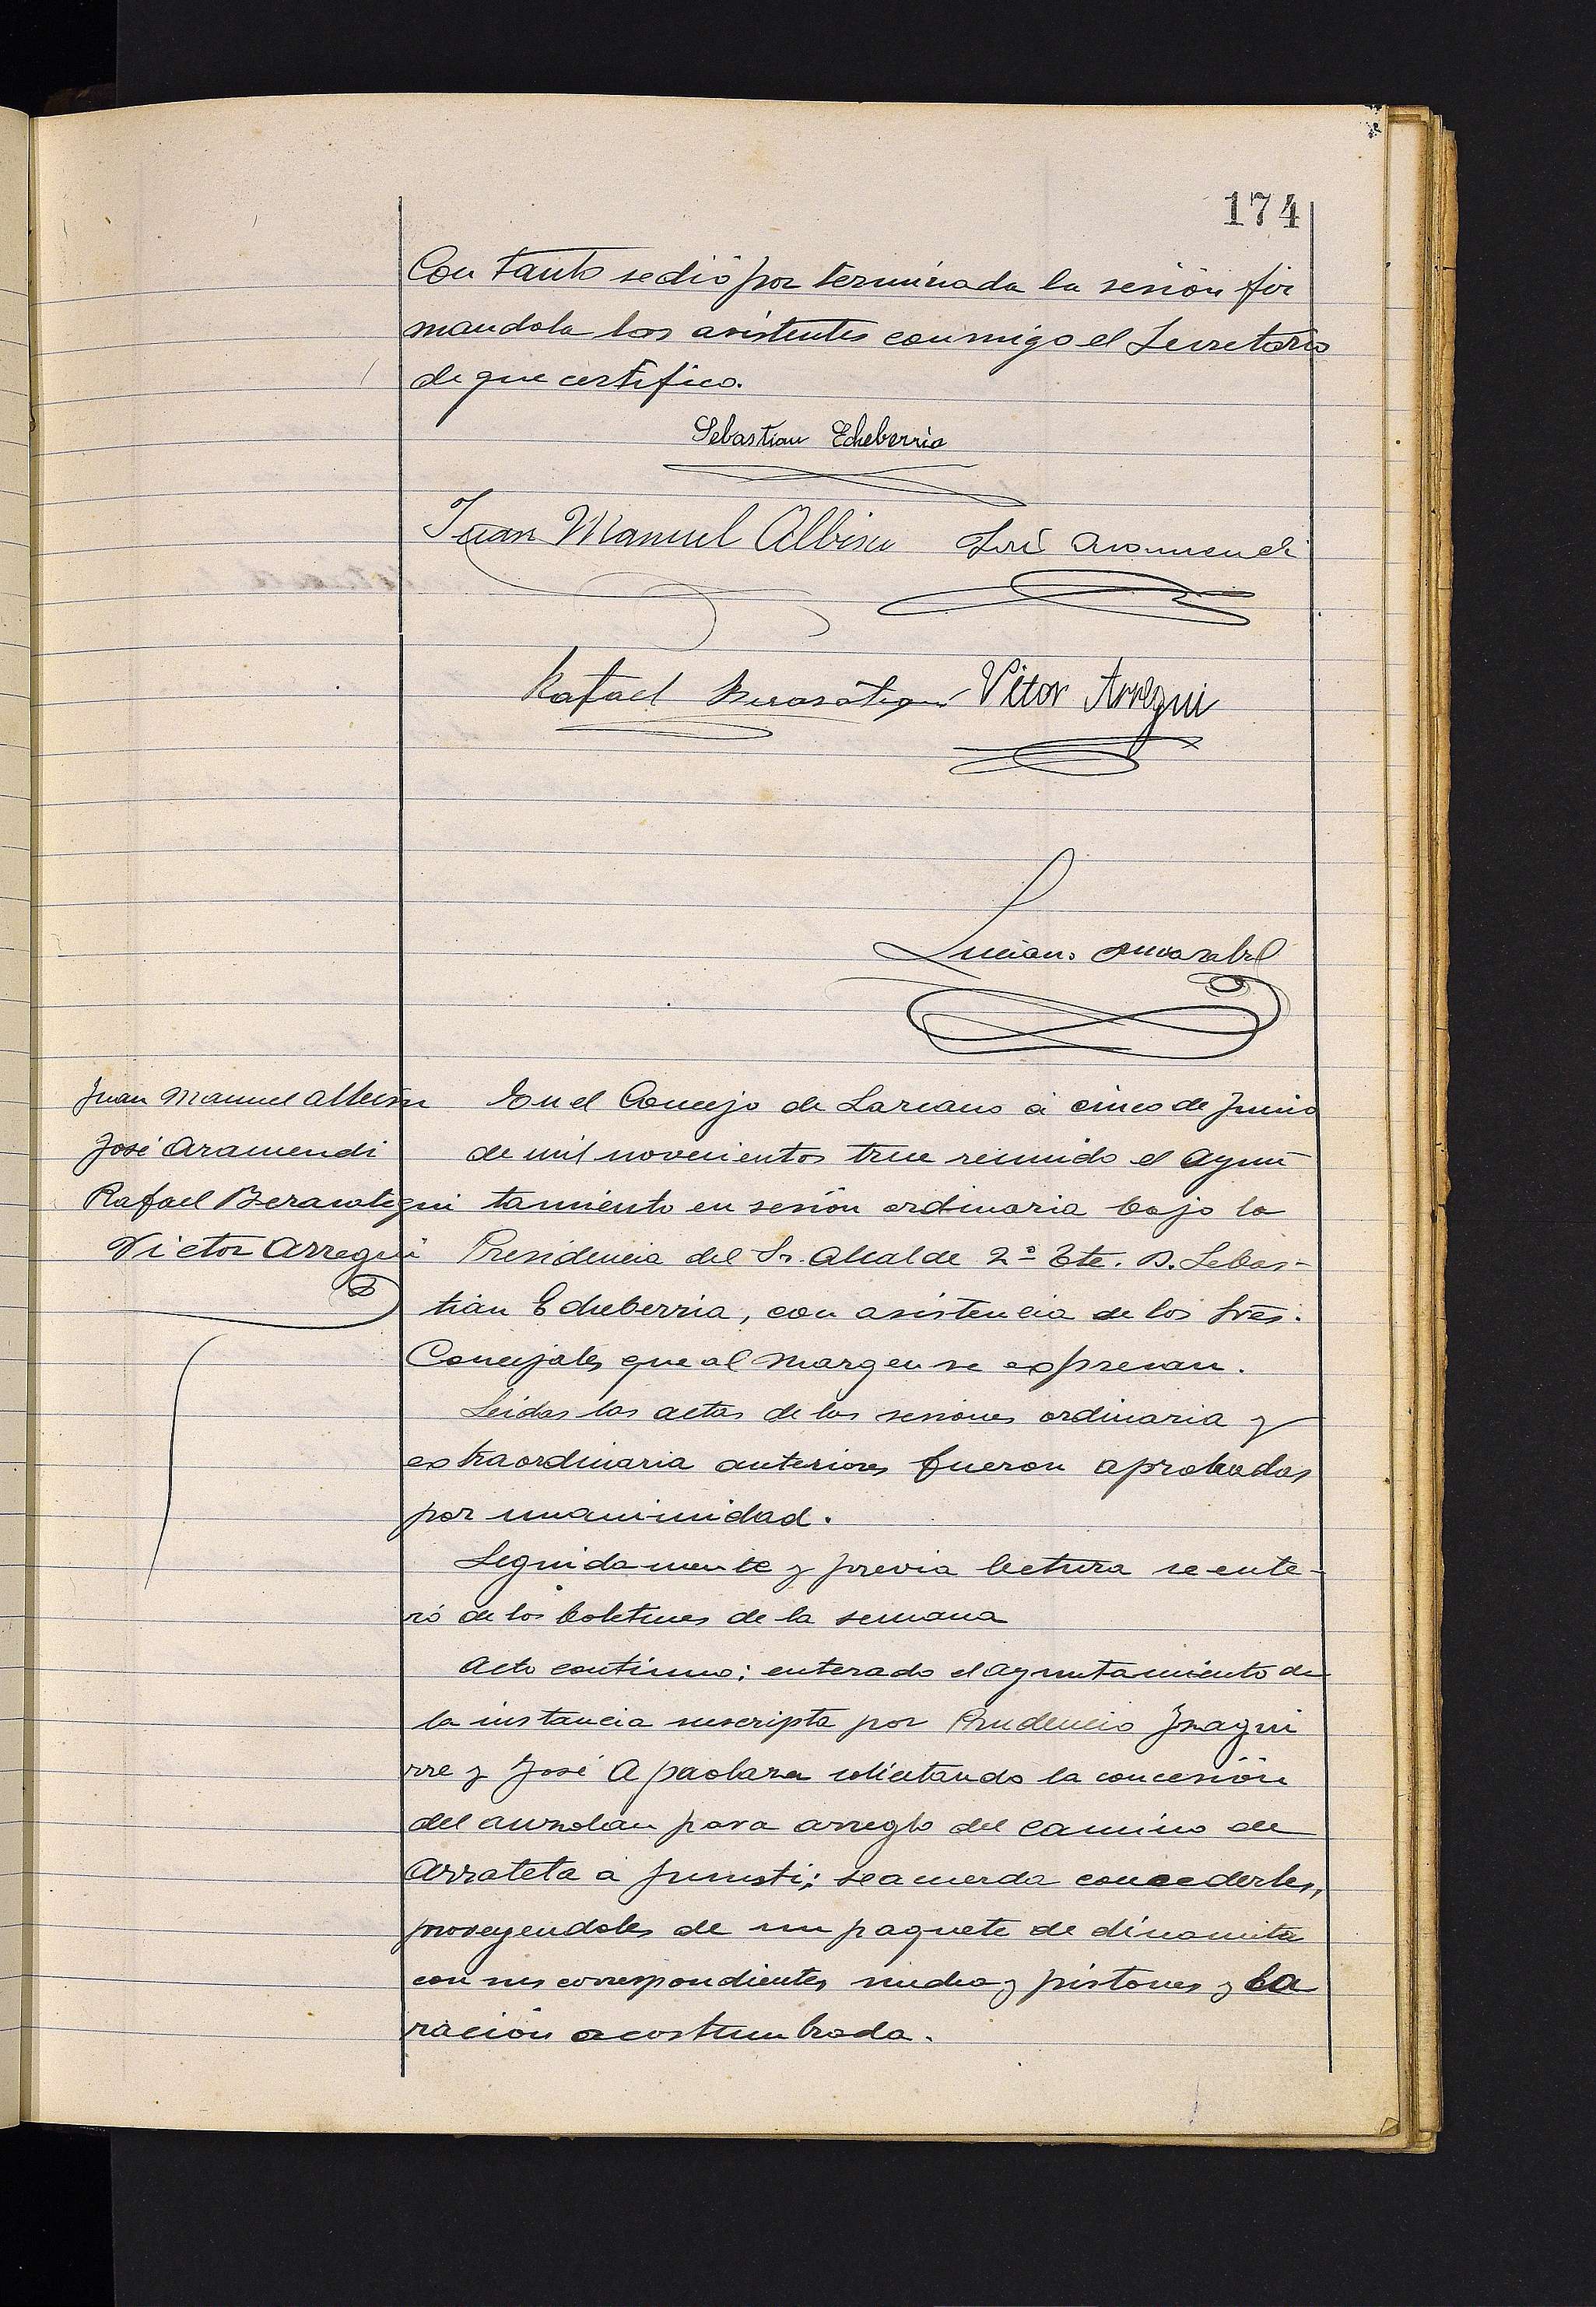 174
Con tanto se dió por terminada la sesión fir
mandola los asistentes conmigo el Secretario
de que certifico.
Sebastian Echeberria
Juan Manuel Albisu José Aramendi
Rafael Berasategui Vitor Arregui
Luciano
Juan Manuel Albisu
José Aramendi
Rafael Berasategui
Victor Arregui
En el Concejo de Lazcano á cinco de Junio
de mil novecientos trece reunido el Ayun
tamiento en sesión ordinaria bajo la
Presidencia del Sr. Alcalde 2º Tte. D. Sebas-
tián Echeberria, con asistencia de los Sres.
Concejales que al margen se expresan.
Leidas las actas de las sesiones ordinaria y
extraordinaria anteriores fueron aprobadas
por unanimidad.
Seguidamente y previa lectura se ente-
ró de los boletines de la semana
Acto continuo: enterado el Ayuntamiento de
la instancia suscripta por Prudencio Yzagui
rre y José Apaolaza solicitando la concesión
del auzolan para arreglo del camino de
Arrateta á ; se acuerda concederles,
proveyendoles de un paquete de dinamita
con sus correspondientes mecha y pistones y la
ración acostumbrada.